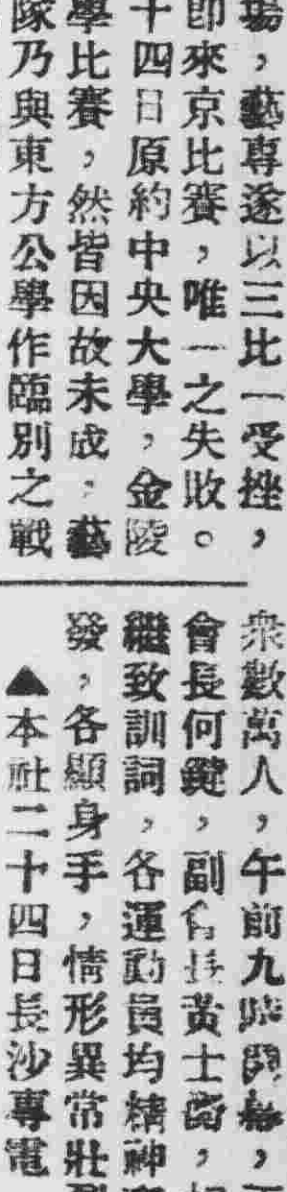 場，藝專遂以三比一受挫，
即來京比賽，唯一之失敗。
十四日原約中央大學，金陵
學比賽，然皆因故未成，藝
隊乃與東方公學作臨別之戰
衆數萬人，午前九時開幕，
會長何鍵，副會長黃士衡，
繼致訓詞，各運動員均精神
發，各顯身手，情形異常壯
▲本社二十四日長沙專電